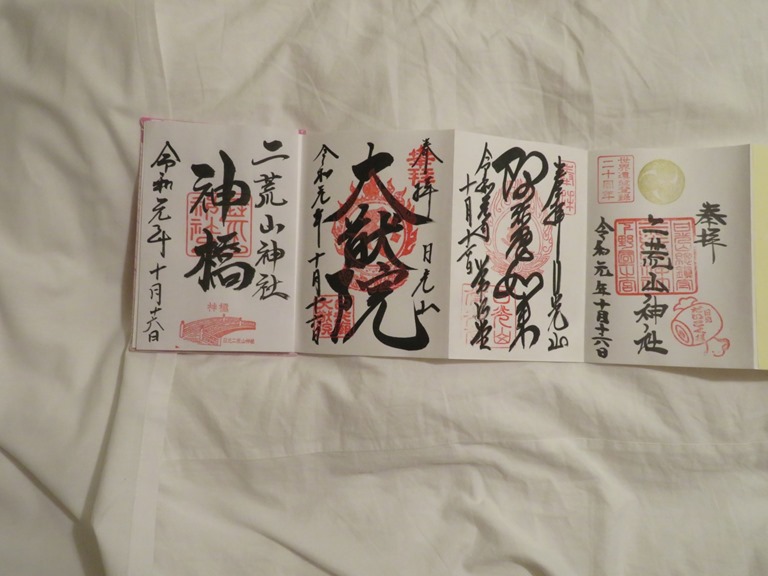 二荒山神社
神橋
令和元年十月十六日
神橋
日光二荒山神社
奉拝 日光山
大猷院
令和元年十月十六日
奉拝 日光山
阿弥陀如来
令和元年十月十六日 常行堂
奉拝
二荒山神社
令和元年十月十六日
世界遺産登録
二十周年